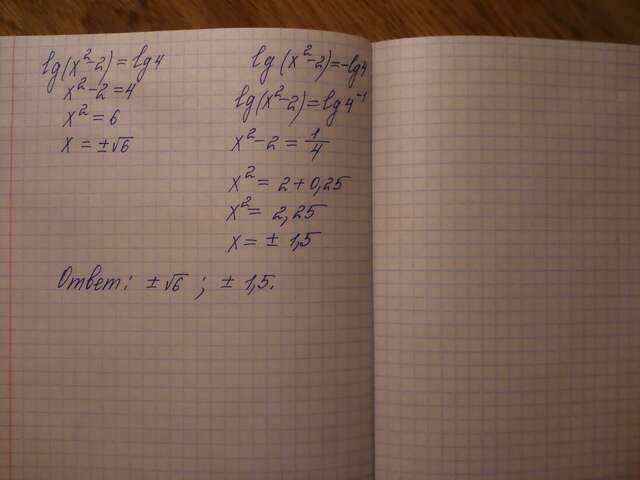 lg(x²-2) = lg4
x²-2=4
x² = 6
x = ±√6
lg(x²-2)=-lg4
lg(x²-2)=lg4⁻¹
x²-2 = 1/4
x² = 2+0,25
x² = 2,25
x = ± 1,5
Ответ: ±√6 ; ± 1,5.